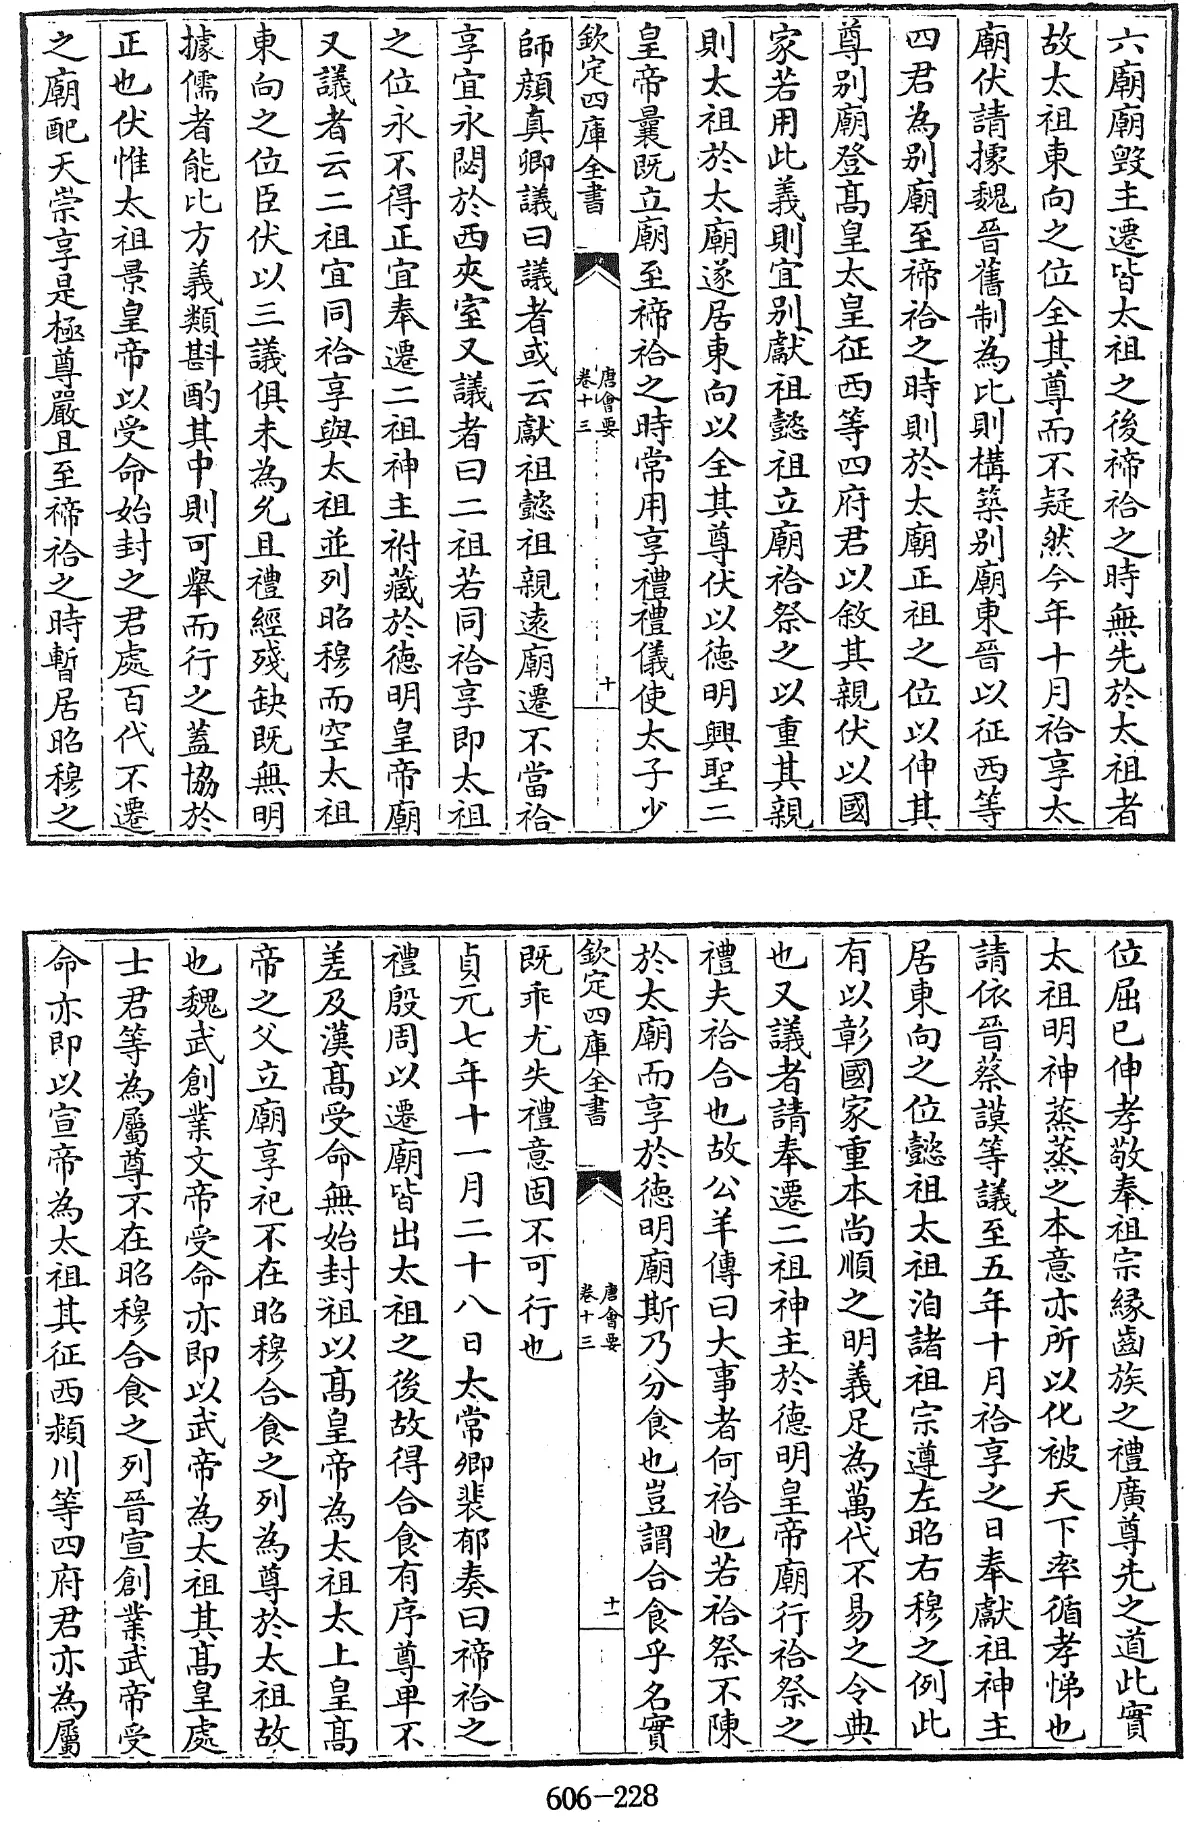 六廟廟毀主遷皆太祖之後禘祫之時無先於太祖者
故太祖東向之位全其尊而不疑然今年十月祫享太
廟伏請據魏晉舊制為比則構築別廟東晉以征西等
四君為別廟至禘祫之時則於太廟正祖之位以伸其
尊別廟登高皇太皇征西等四府君以敘其親伏以國
家若用此義則宜別獻祖懿祖立廟祫祭之以重其親
則太祖於太廟遂居東向以全其尊伏以德明興聖二
皇帝曩既立廟至禘祫之時常用享禮禮儀使太子少
欽定四庫全書
唐會要
卷十三
十
師顏真卿議曰議者或云獻祖懿祖親遠廟遷不當祫
享宜永閟於西夾室又議者曰二祖若同祫享即太祖
之位永不得正宜奉遷二祖神主祔藏於德明皇帝廟
又議者云二祖宜同祫享與太祖並列昭穆而空太祖
東向之位臣伏以三議俱未為允且禮經殘缺既無明
據儒者能比方義類斟酌其中則可舉而行之蓋協於
正也伏惟太祖景皇帝以受命始封之君處百代不遷
之廟配天崇享是極尊嚴且至禘祫之時暫居昭穆之
位屈已伸孝敬奉祖宗緣齒族之禮廣尊先之道此實
太祖明神蒸蒸之本意亦所以化被天下率循孝悌也
請依晉蔡謨等議至五年十月祫享之日奉獻祖神主
居東向之位懿祖太祖洎諸祖宗遵左昭右穆之例此
有以彰國家重本尚順之明義足為萬代不易之令典
也又議者請奉遷二祖神主於德明皇帝廟行祫祭之
禮夫祫合也故公羊傳曰大事者何祫也若祫祭不陳
於太廟而享於德明廟斯乃分食也豈謂合食乎名實
欽定四庫全書
唐會要
卷十三
十一
既乖尤失禮意固不可行也
貞元七年十一月二十八日太常卿裴郁奏曰禘祫之
禮殷周以遷廟皆出太祖之後故得合食有序尊卑不
差及漢高受命無始封祖以高皇帝為太祖太上皇高
帝之父立廟享祀不在昭穆合食之列為尊於太祖故
也魏武創業文帝受命亦即以武帝為太祖其高皇處
士君等為屬尊不在昭穆合食之列晉宣創業武帝受
命亦即以宣帝為太祖其征西潁川等四府君亦為屬
606-228